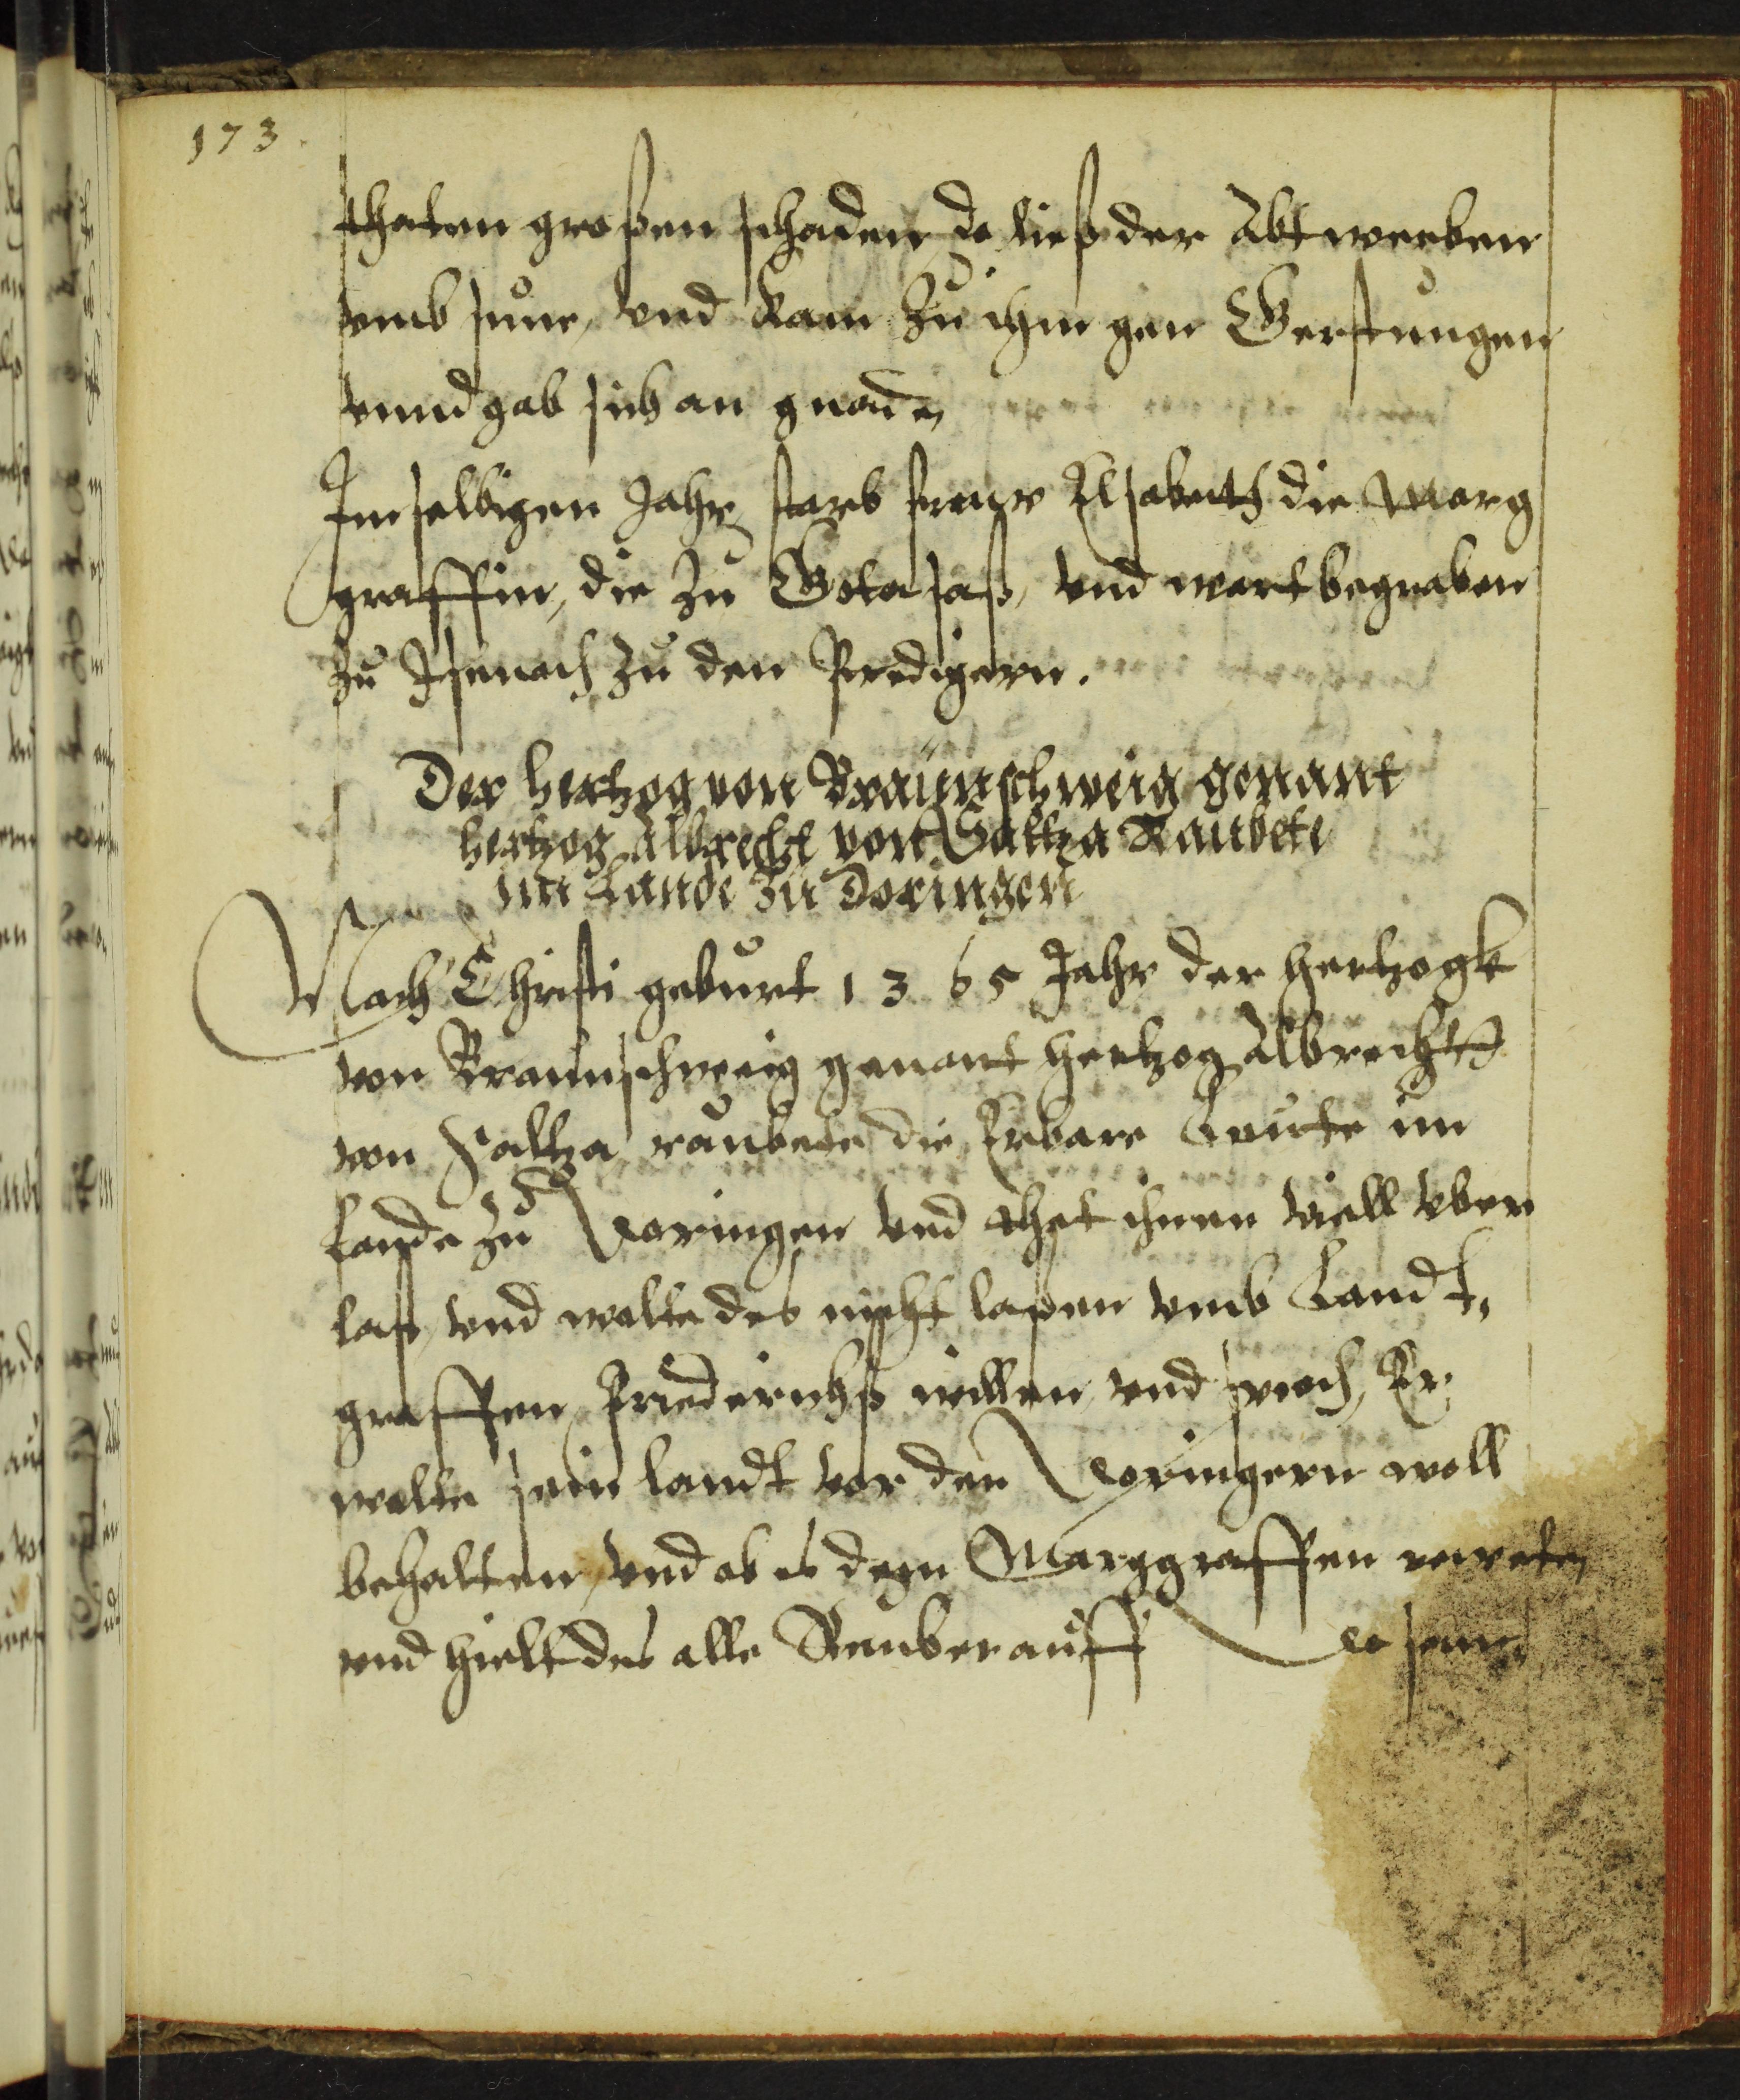 173.
thaten großen schaden, do ließ der Abt werben
vmb sune, vnd kam zu ihm gen Gerstungen
vnnd gab sich an gnade,
Im selbigen Jahr, starb frawe Elsabeth die Marg
graffin, die zu Gota saß, vnd wart begraben
zu Isenach zu den Predigern.
Der hertzog von Braunschweig genant
hertzog Albrecht von Saltza Raubete
im Lande zu Doringen
Nach Christi geburt 1365 Jahr der hertzogk
von Braunschweig genant hertzog Albrecht
von Saltza, raubete die Erbare Leute im
Lande zu Doringen vnd thet ihnen viell vber
last, vnd wolte des nicht laßen vmb Landt,
graffen Friederichß willen, vnd sprach, Er
wolte sein landt vor den Doringern woll
behalten, vnd ob es degen Marggraffen
vnd hielt des alle Reuber auff
Do sam